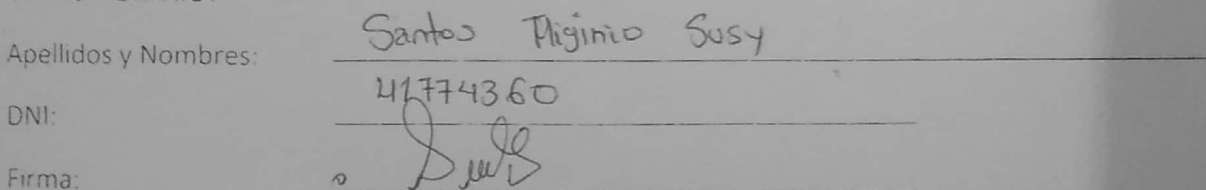 Apellidos y Nombres: Santos Higinio Susy
DNI: 41774360
Firma: